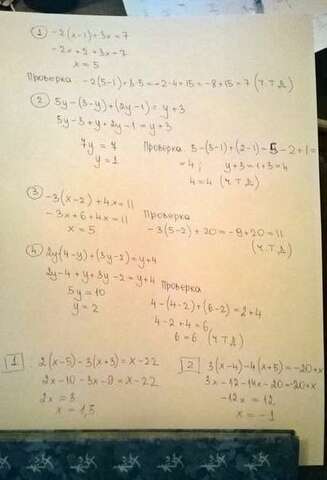 ① -2(x-1)+3x=7
-2x+2+3x=7
x=5
Проверка -2(5-1)+3·5=-2·4+15=-8+15=7 (ч.т.д)
② 5y-(3-y)+(2y-1)=y+3
5y-3+y+2y-1=y+3
7y=7
y=1
Проверка 5-(3-1)+(2-1)=5-2+1=
=4; y+3=1+3=4
4=4 (ч.т.д)
③ -3(x-2)+4x=11
-3x+6+4x=11
x=5
Проверка
-3(5-2)+20=-9+20=11
(ч.т.д)
④ 2y(4-y)+(3y-2)=y+4
2y-4+y+3y-2=y+4
5y=10
y=2
Проверка
4-(4-2)+(6-2)=2+4
4-2+4=6
6=6 (ч.т.д)
1 2(x-5)-3(x+3)=x-22
2x-10-3x-9=x-22
2x=3
x=1,5
2 3(x-4)-4(x+5)=-20+x
3x-12-14x-20=-20+x
-12x=12
x=-1